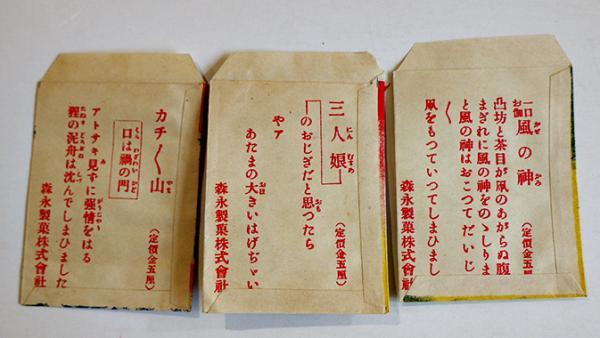 一口お伽 風の神
（定價金五厘）
凸坊と茶目が凧のあがらぬ腹
まぎれに風の神をのゝしりま
と風の神はおこつてだいじ
〱
凧をもつていつてしひまし
森永製菓株式會社
三人娘
（定價金五厘）
のおじぎだと思つたら
やア
あたまの大きいはげぢゃい
森永製菓株式會社
カチ〱山
（定價金五厘）
口は禍の門
アトサキ見ずに強情をはる
狸の泥舟は沈んでしまひました
森永製菓株式會社